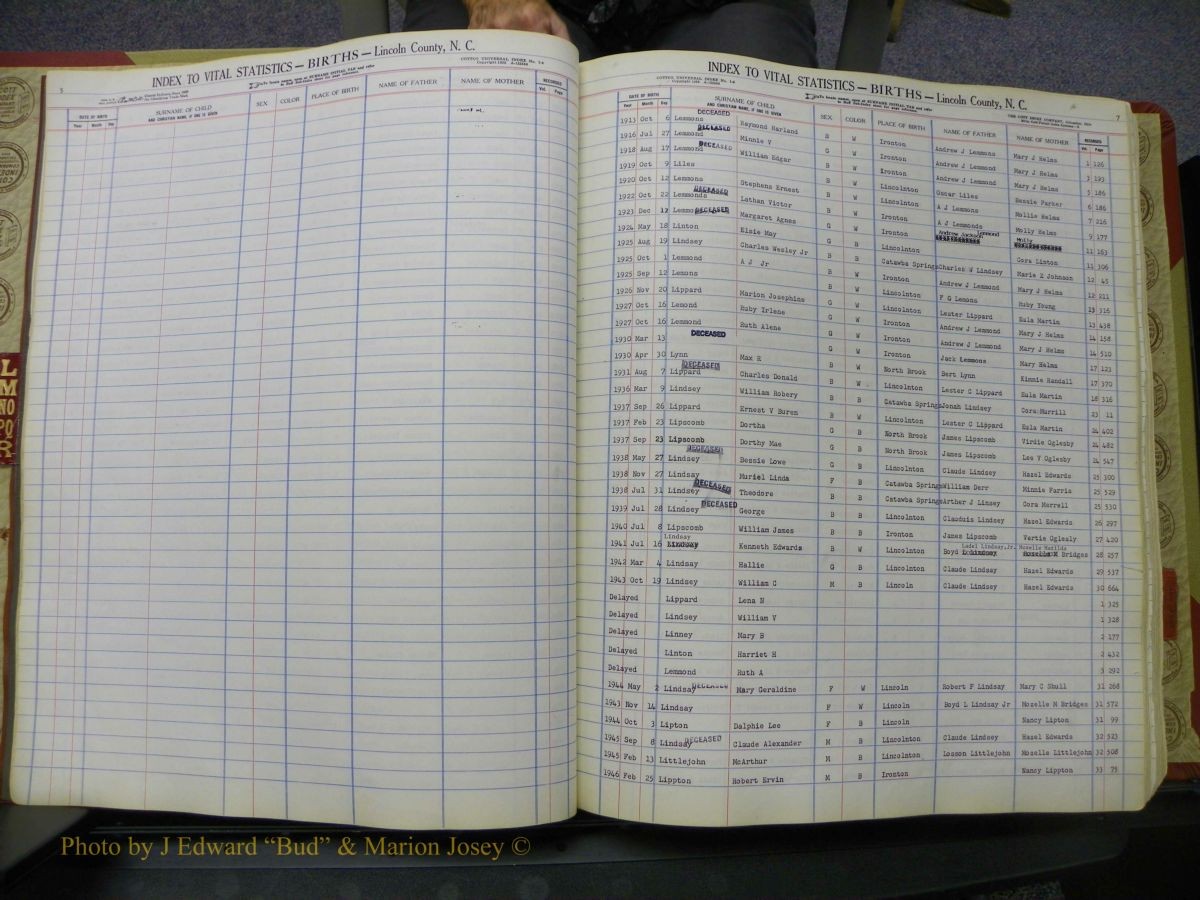 INDEX TO VITAL STATISTICS — BIRTHS — Lincoln County, N. C.
COTTCO UNIVERSAL INDEX No. 1-a
DATE OF BIRTH
Year Month Day
SURNAME OF CHILD
AND CHRISTIAN NAME, IF ONE IS GIVEN
SEX COLOR PLACE OF BIRTH NAME OF FATHER NAME OF MOTHER RECORDED
Vol. Page
INDEX TO VITAL STATISTICS — BIRTHS — Lincoln County, N. C.
COTTCO UNIVERSAL INDEX No. 1-a
7
DATE OF BIRTH
Year Month Day
SURNAME OF CHILD
AND CHRISTIAN NAME, IF ONE IS GIVEN
SEX COLOR PLACE OF BIRTH NAME OF FATHER NAME OF MOTHER RECORDED
Vol. Page
1913 Oct 6 Lemmons DECEASED Raymond Harland B W Ironton Andrew J Lemmons Mary J Helms 1 126
1916 Jul 27 Lemmond DECEASED Minnie V G W Ironton Andrew J Lemmond Mary J Helms 3 193
1918 Aug 17 Lemmond DECEASED William Edgar B W Ironton Andrew J Lemmond Mary J Helms 5 186
1919 Oct 9 Liles B W Lincolnton Oscar Liles Bessie Parker 6 186
1920 Oct 12 Lemmons Stephens Ernest B W Lincolnton A J Lemmons Mollie Helms 7 216
1922 Oct 22 Lemmonds DECEASED Lathan Victor B W Ironton A J Lemmonds Molly Helms 9 177
1923 Dec 12 Lemmond DECEASED Margaret Agnes G W Ironton Andrew Jackson Lemmond Molly 11 163
1924 May 18 Linton Elsie May G B Lincolnton Cora Linton 11 306
1925 Aug 19 Lindsey Charles Wesley Jr B B Catawba Springs Charles W Lindsey Marie Z Johnson 12 45
1925 Oct 1 Lemmond A J Jr B W Ironton Andrew J Lemmond Mary J Helms 12 211
1925 Sep 12 Lemons B W Lincolnton F G Lemons Ruby Young 13 316
1926 Nov 20 Lippard Marion Josephine G W Lincolnton Lester Lippard Eula Martin 13 438
1927 Oct 16 Lemond Ruby Irlene G W Ironton Andrew J Lemmond Mary J Helms 14 158
1927 Oct 16 Lemmond Ruth Alene G W Ironton Andrew J Lemmond Mary J Helms 14 510
1930 Mar 13 DECEASED G W Ironton Jack Lemmons Mary Helms 17 123
1930 Apr 30 Lynn Max R B W North Brook Bert Lynn Kinnie Randall 17 370
1931 Aug 7 Lippard DECEASED Charles Donald B W Lincolnton Lester C Lippard Eula Martin 18 316
1936 Mar 9 Lindsey William Robery B B Catawba Springs Jonah Lindsey Cora Murrill 23 11
1937 Sep 26 Lippard Ernest V Buren B W Lincolnton Lester C Lippard Eula Martin 24 402
1937 Feb 23 Lipscomb Dortha G B North Brook James Lipscomb Virdie Oglesby 24 482
1937 Sep 23 Lipscomb Dorthy Mae G B North Brook James Lipscomb Lee V Oglesby 24 547
1938 May 27 Lindsey DECEASED Bessie Lowe G B Lincolnton Claude Lindsey Hazel Edwards 25 300
1938 Nov 27 Lindsay Muriel Linda F B Catawba Springs William Derr Minnie Farris 25 529
1938 Jul 31 Lindsey DECEASED Theodore B B Catawba Springs Arthur J Linsey Cora Morrell 25 530
1939 Jul 28 Lindsey DECEASED George B B Lincolnton Clauduis Lindsey Hazel Edwards 26 297
1940 Jul 8 Lipscomb William James B B Ironton James Lipscomb Vertie Oglesly 27 420
1941 Jul 16 Lindsay Kenneth Edwards B W Lincolnton Boyd Ladel Lindsay,Jr. Mozelle Matilda Bridges 28 257
1942 Mar 4 Lindsay Hallie G B Lincolnton Claude Lindsay Hazel Edwards 29 537
1943 Oct 19 Lindsay William C M B Lincoln Claude Lindsey Hazel Edwards 30 664
Delayed Lippard Lena N 1 325
Delayed Lindsey William V 1 328
Delayed Linney Mary B 2 177
Delayed Linton Harriet H 2 432
Delayed Lemmond Ruth A 3 292
1944 May 2 Lindsay DECEASED Mary Geraldine F W Lincoln Robert F Lindsay Mary C Shull 31 268
1943 Nov 14 Lindsay F W Lincoln Boyd L Lindsay Jr Mozelle M Bridges 31 572
1944 Oct 3 Lipton Dalphie Lee F B Lincoln Nancy Lipton 31 99
1945 Sep 8 Lindsay DECEASED Claude Alexander M B Lincolnton Claude Lindsey Hazel Edwards 32 523
1945 Feb 13 Littlejohn McArthur M B Lincolnton Losson Littlejohn Mozelle Littlejohn 32 508
1946 Feb 25 Lippton Robert Ervin M B Ironton Nancy Lippton 33 75
Photo by J Edward “Bud” & Marion Josey ©